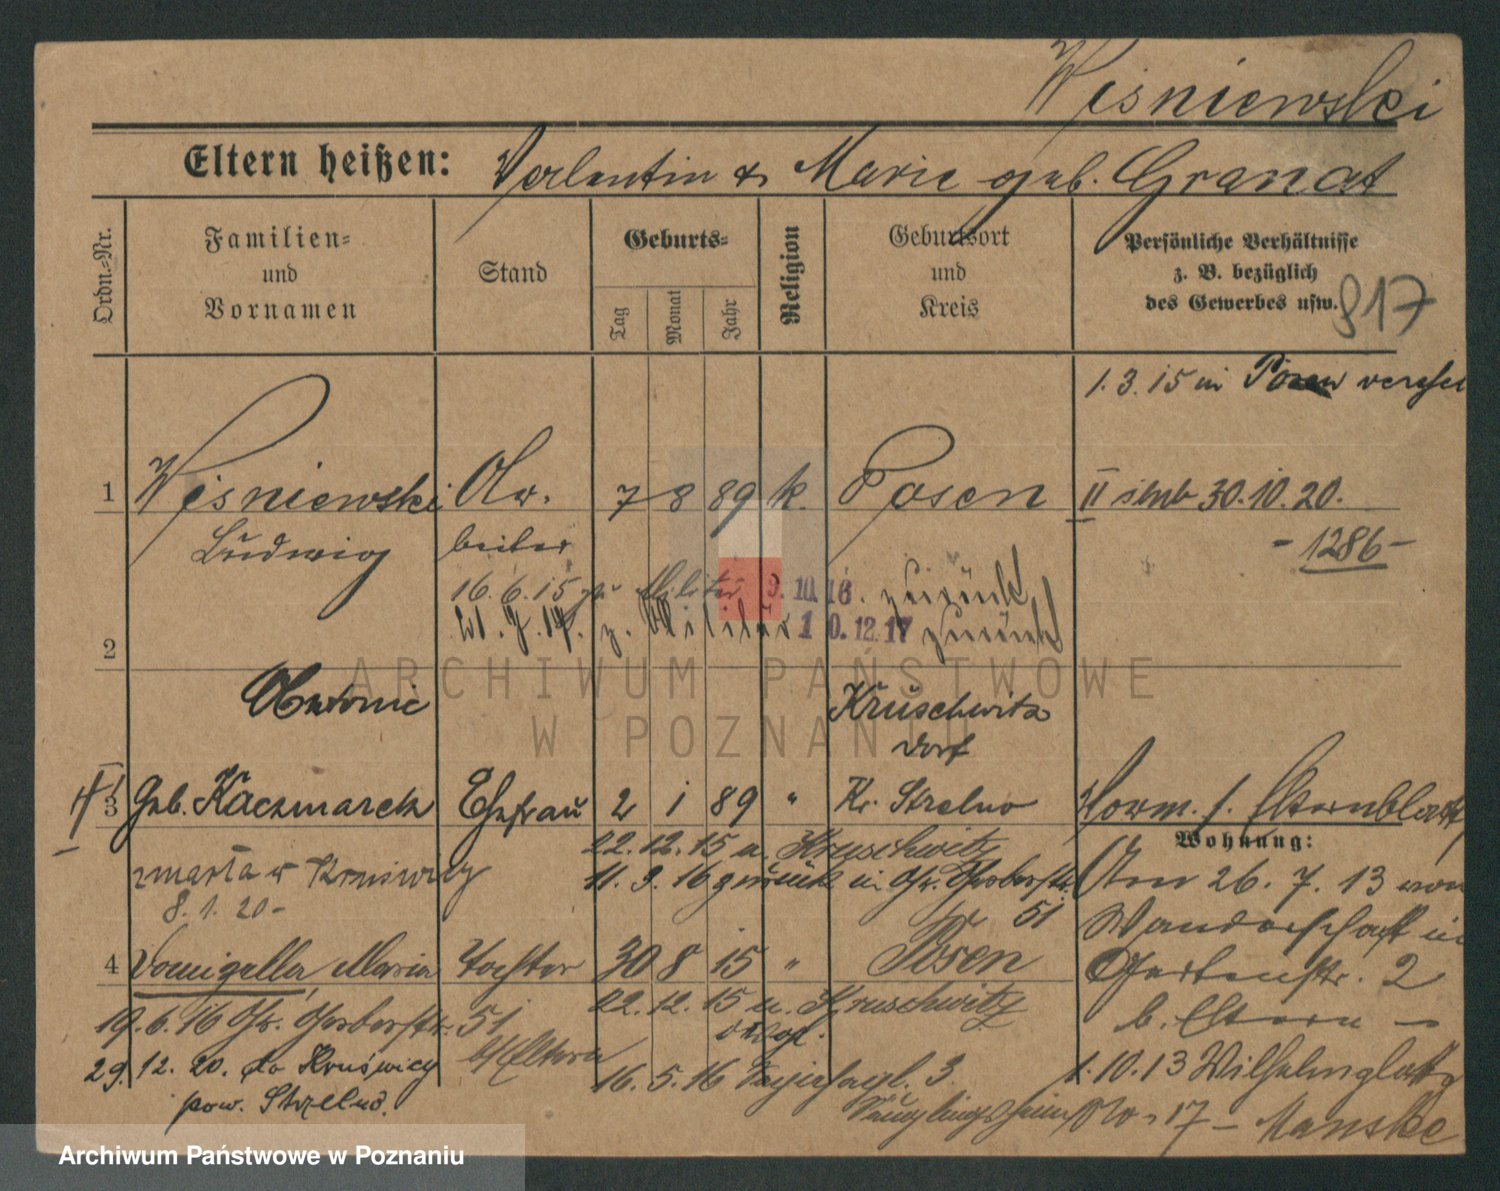 Wisniewski
Eltern heißen: Valentin & Marie geb. Granat
Ordn.-Nr.
Familien- und Vornamen
Stand
Geburts-
Tag
Monat
Jahr
Religion
Geburtsort und Kreis
Persönliche Verhältnisse
z. B. bezüglich
des Gewerbes usw.
817
1.3.15 in Posen
1 Wisniewski Ar- 7 8 89 k. Posen
II 30.10.20.
Ludwig beiter
- 1286 -
16.6.15 zu Militär 9.10.16. zurück
7.17. z. Militär 10.12.17 zurück
2
Antonie Kruschwitz
Dorf
II 3 Geb. Kaczmarek Ehefrau 2 1 89 " Kr. Strelno
Norm. s. Elternblatt
Wohnung:
22.12.15 n. Kruschwitz
zmarła w Kruswicy
11.3.16 zurück in Gr. Gerberstr. 51
8.1.20 -
Am 26.7.13 von
Wanderschaft in
4 Maria Tochter 30 8 15 " Posen
Gartenstr. 2
b. Eltern -
19.6.16 Gr. Gerberstr. 51
22.12.15 n. Kruschwitz
b/Eltern
29.12.20. do Kruświcy
pow. Strzelno.
16.5.16 3.
Säuglingsheim
1.10.13
17 - Manske
ARCHIWUM PAŃSTWOWE
W POZNANIU
Archiwum Państwowe w Poznaniu